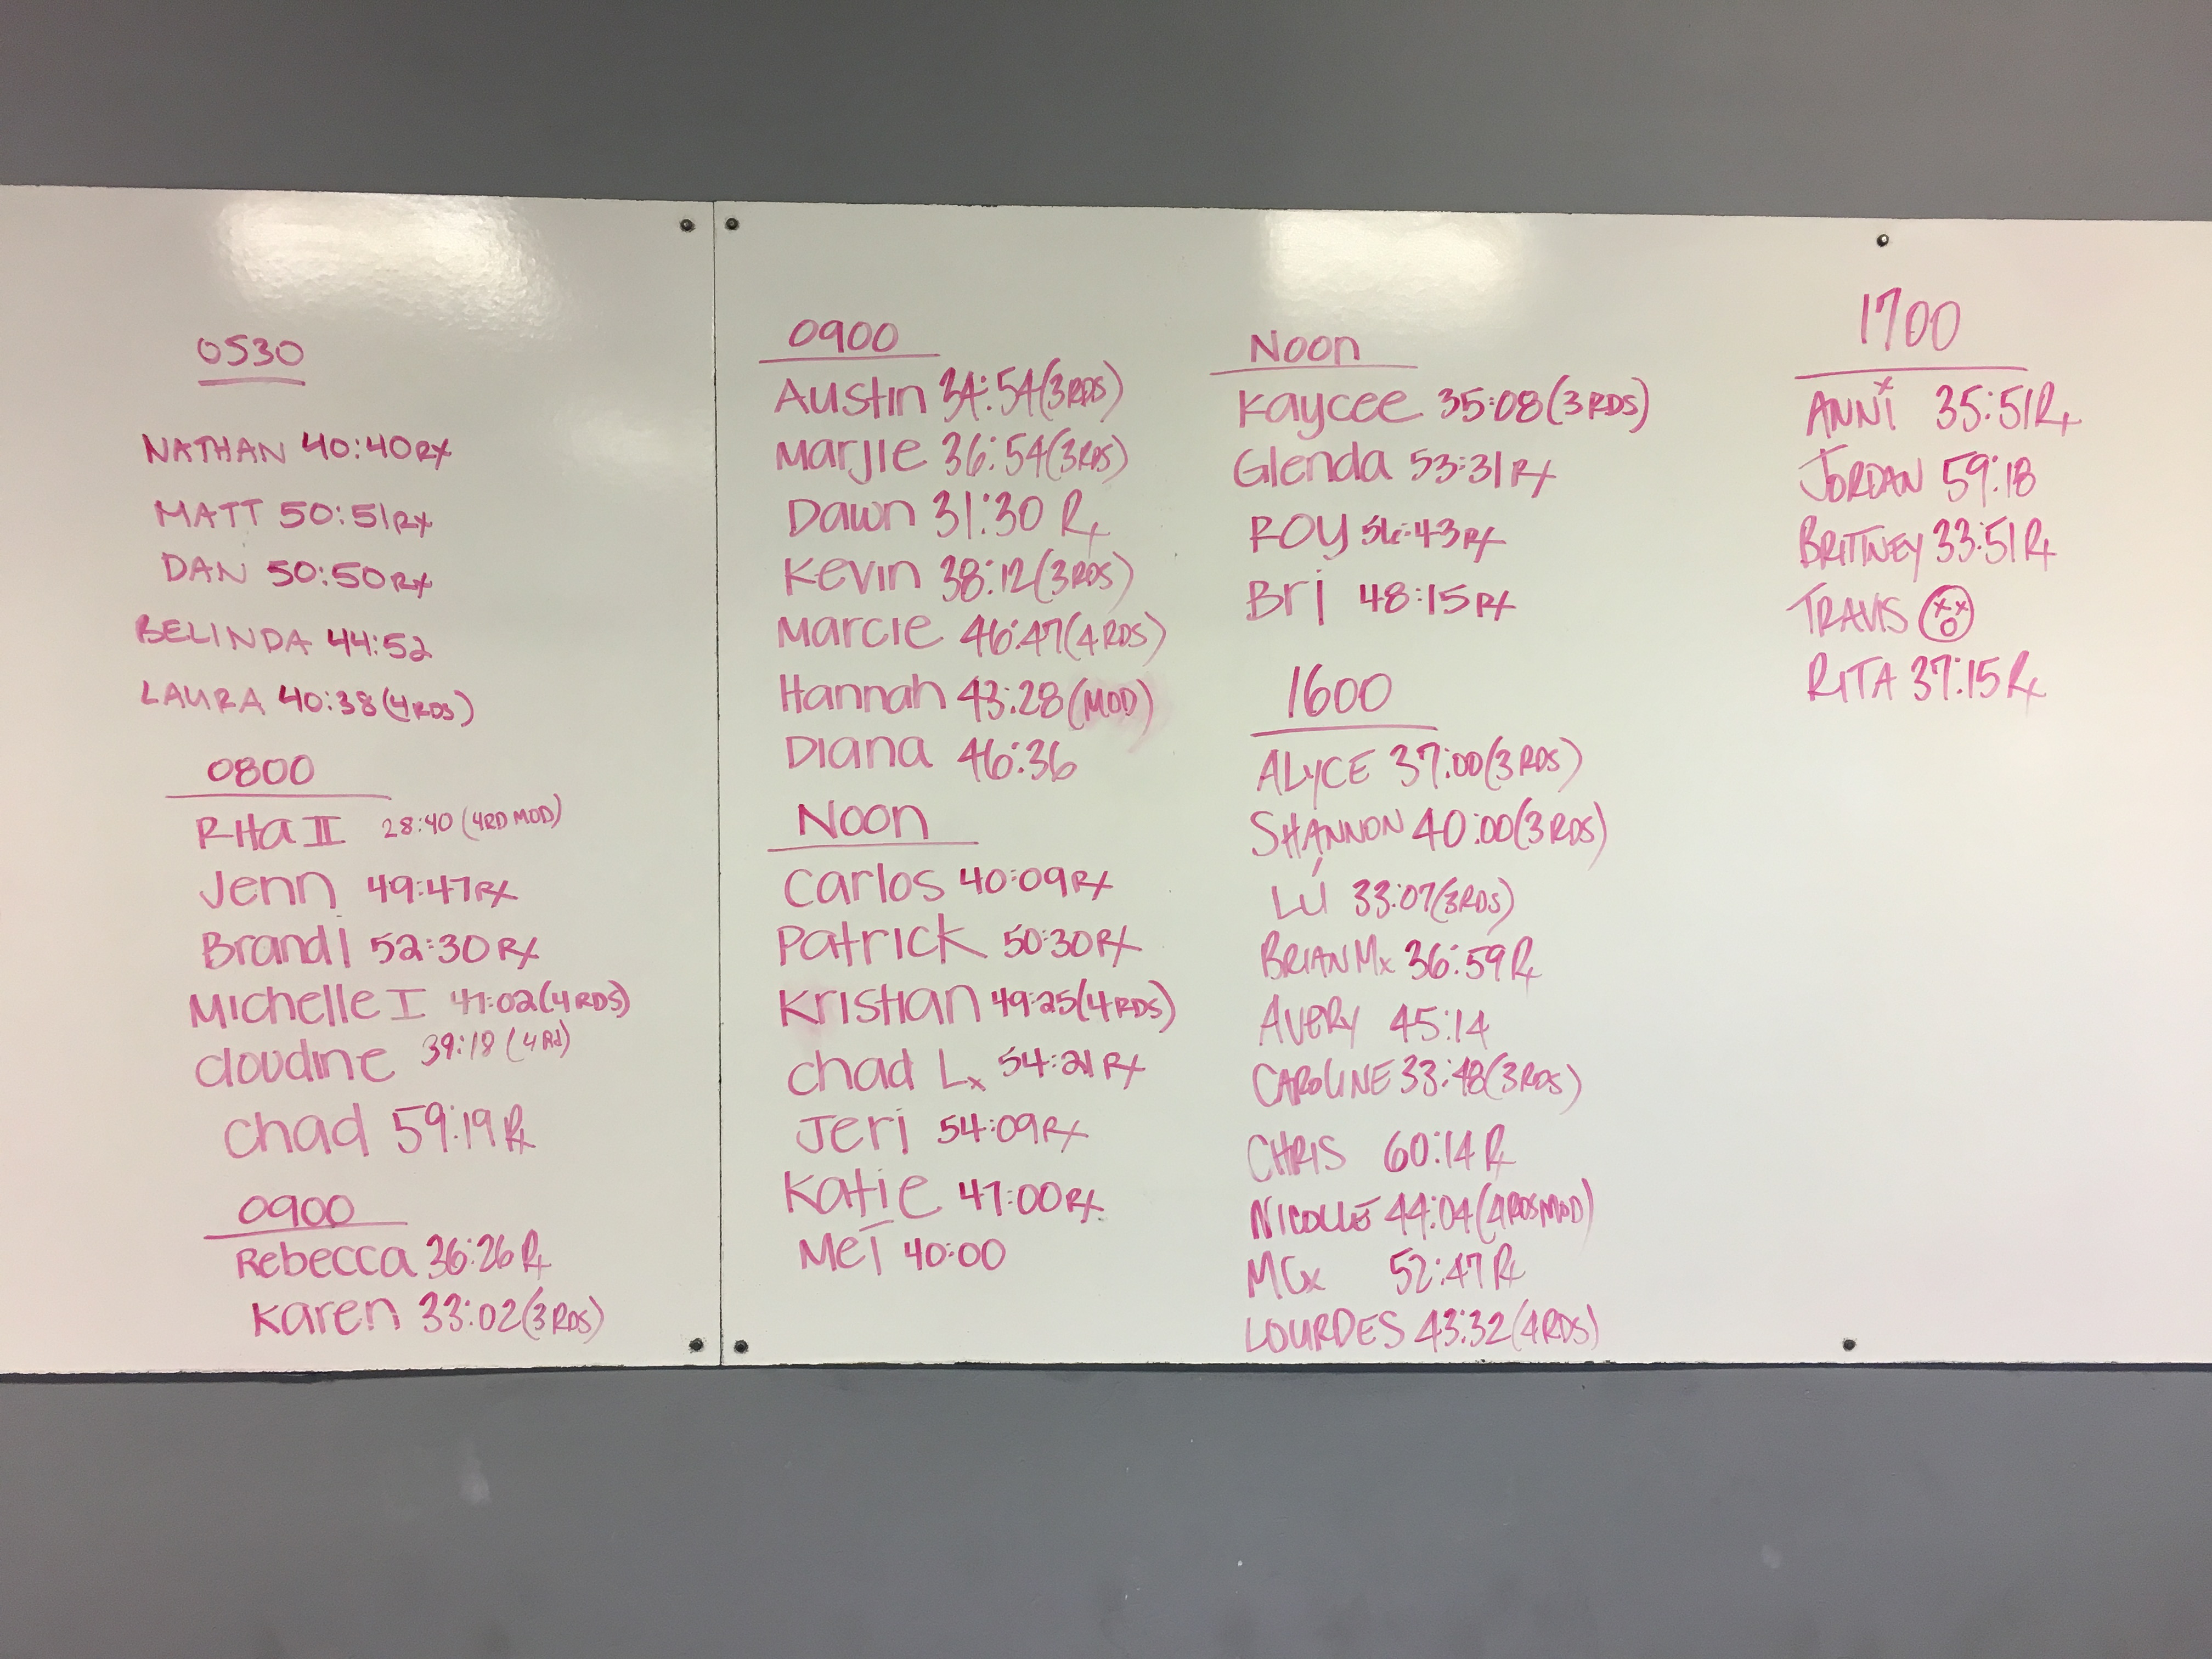 0530
NATHAN 40:40 Rx
MATT 50:51 Rx
DAN 50:50 Rx
BELINDA 44:52
LAURA 40:38 (4RDS)
0800
Rita II 28:40 (4RD MOD)
Jenn 49:47 Rx
Brandi 52:30 Rx
Michelle I 47:02 (4RDS)
cloudine 39:18 (4Rd)
chad 59:19 Rx
0900
Rebecca 36:26 Rx
Karen 33:02 (3RDS)
0900
Austin 34:54 (3RDS)
Marjie 36:54 (3RDS)
Dawn 31:30 Rx
Kevin 38:12 (3RDS)
Marcie 46:47 (4RDS)
Hannah 43:28 (MOD)
Diana 46:36
Noon
Carlos 40:09 Rx
Patrick 50:30 Rx
Kristian 49:25 (4RDS)
chad Lx 54:21 Rx
Jeri 54:09 Rx
Katie 47:00 Rx
Mei 40:00
Noon
Kaycee 35:08 (3RDS)
Glenda 53:31 Rx
ROY Rx
Bri 48:15 Rx
1600
ALYCE 37:00 (3RDS)
SHANNON 40:00 (3RDS)
LÚ 33:07 (3RDS)
BRIAN Mx 36:59 Rx
AVERY 45:14
CAROLINE 33:48 (3RDS)
CHRIS 60:14 Rx
NICOLLE 44:04 (4RDS MOD)
MCx 52:47 Rx
LOURDES 43:32 (4RDS)
1700
ANNi 35:51 Rx
JORDAN 59:18
BRITTNEY 33:51 Rx
TRAVIS
RITA 37:15 Rx